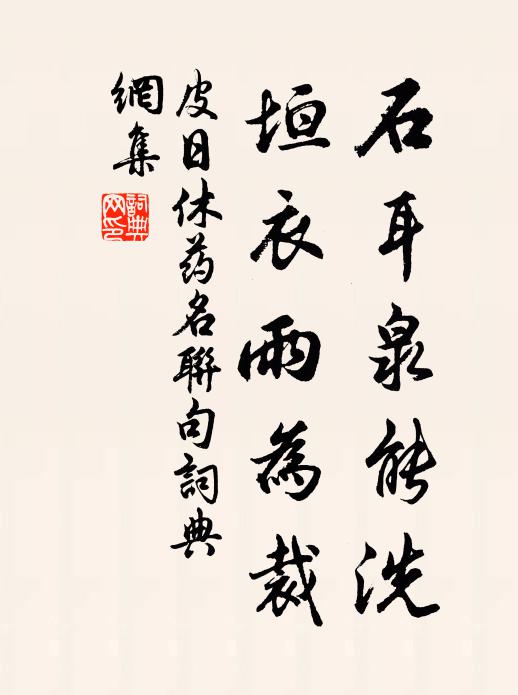 石耳泉能洗
垣衣雨為裁
皮日休药名聯句詞典
網集
詞典
网印